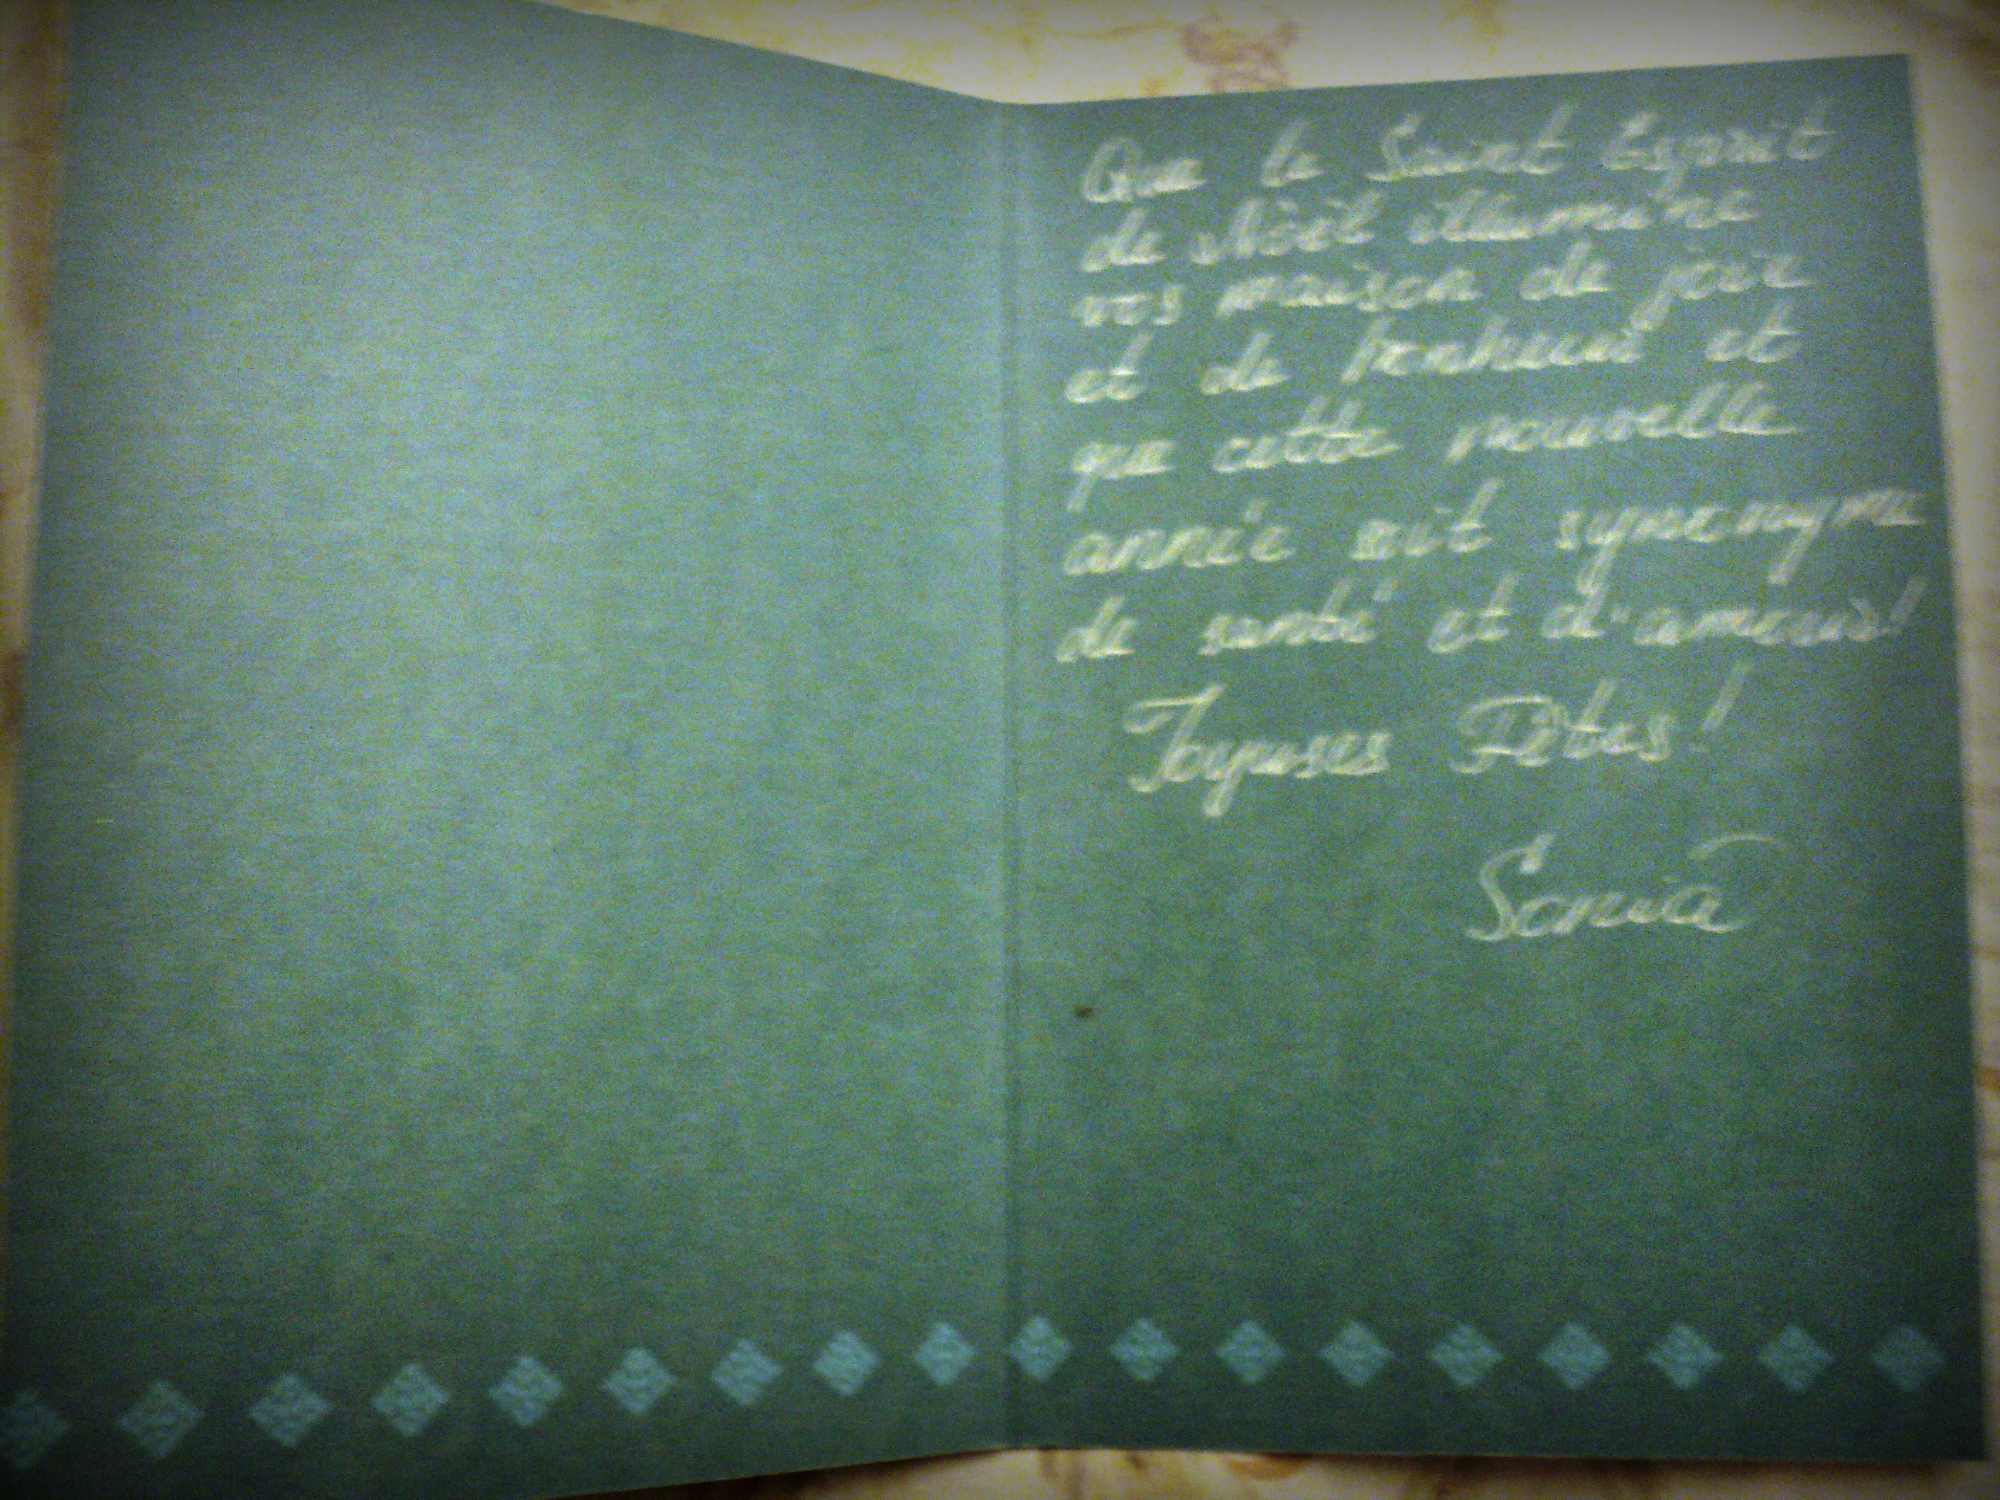 Que le Saint Esprit
de Nöel illumine
vos maison de joie
et de bonheur et
que cette nouvelle
année soit synonyme
de santé et d'amour!
Joyuses Fêtes!
Sonia